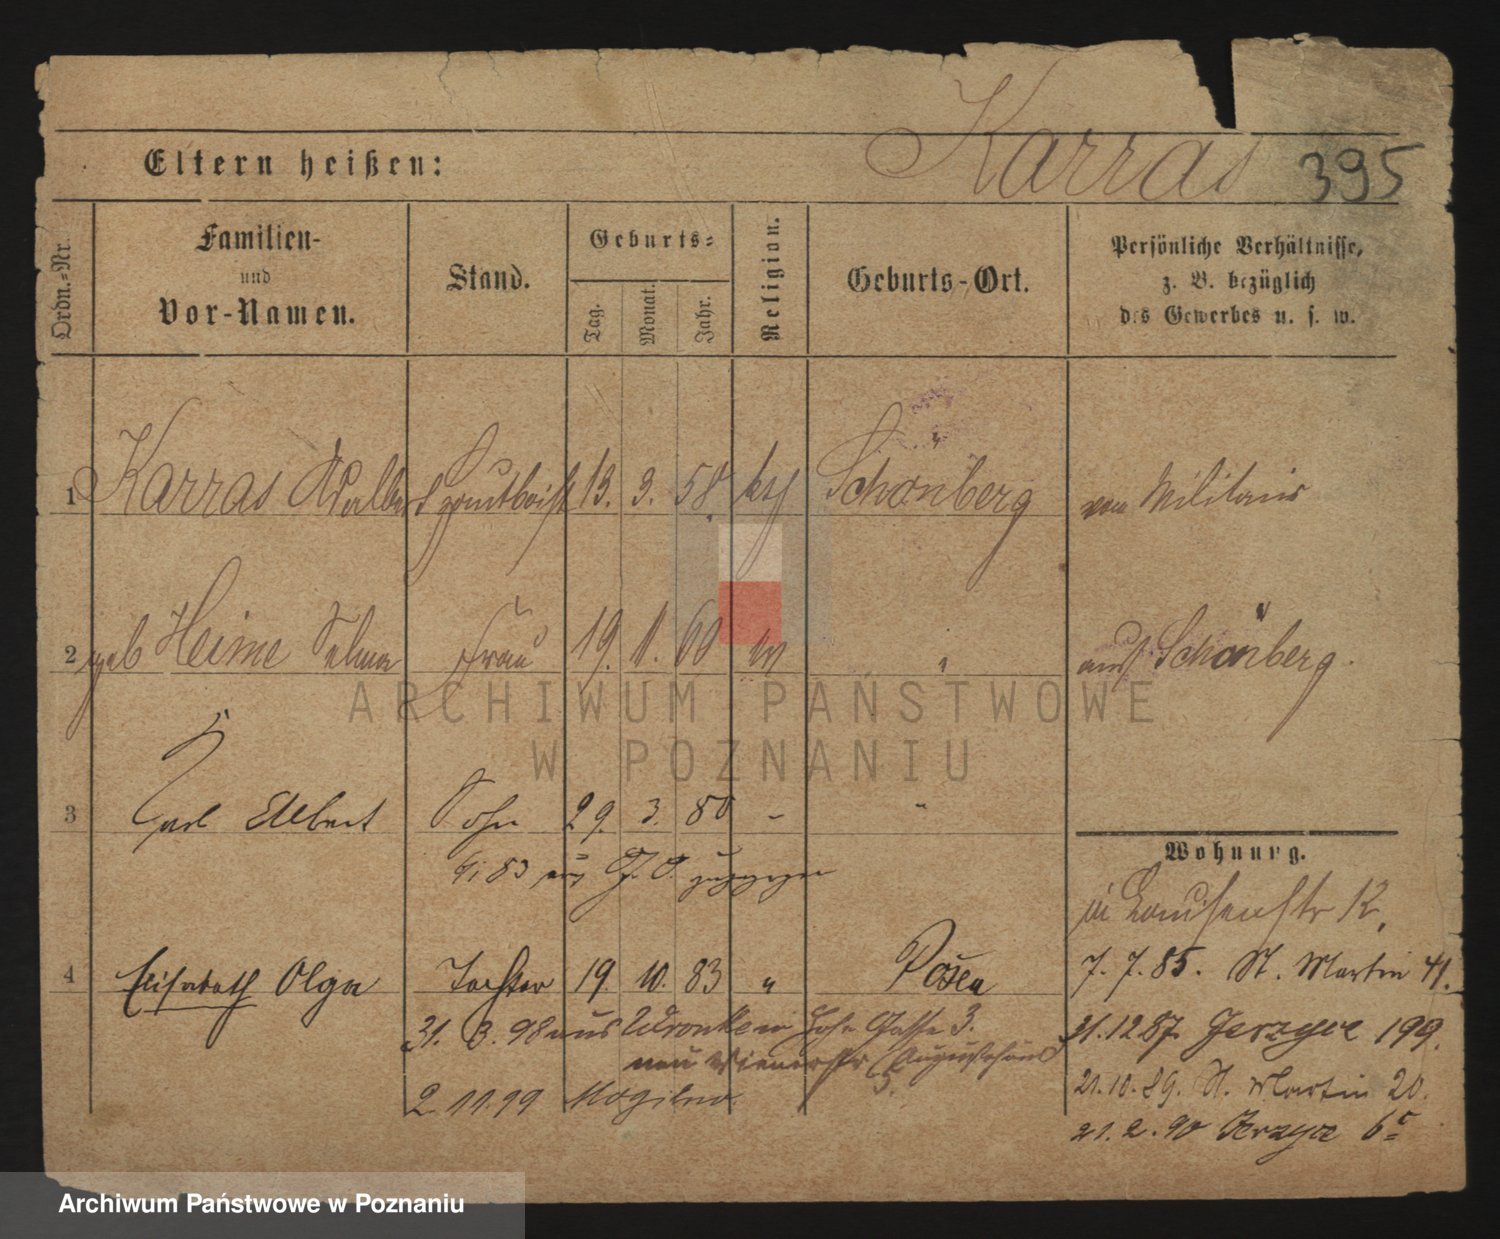 Karras 395
Eltern heißen:
Ordn.-Nr.
Familien-
und
Vor-Namen.
Stand.
Geburts-
Tag. Monat. Jahr.
Religion.
Geburts-Ort.
Persönliche Verhältnisse,
z. B. bezüglich
des Gewerbes u. s. w.
1 Karras Adalbert 13. 3. 58. Schönberg vom Militair
2 geb Heime Selma Frau 19. 11. 60 " aus Schönberg.
3 Carl Albert Sohn 29. 3. 80 - "
83 aus
Wohnung.
4 Elisabeth Olga Tochter 19. 10. 83 " Posen
7. 7. 85. St. Martin 41.
31. 3. 98 aus Wronke in Hohe Gasse 3.
31.12 87. Jerzyce 199.
neu Wienerstr 5.
21.10.89. St. Martin 20.
2.11.99 Mogilno.
21.2.90 Jerzyce 6c
ARCHIWUM PAŃSTWOWE
W POZNANIU
Archiwum Państwowe w Poznaniu